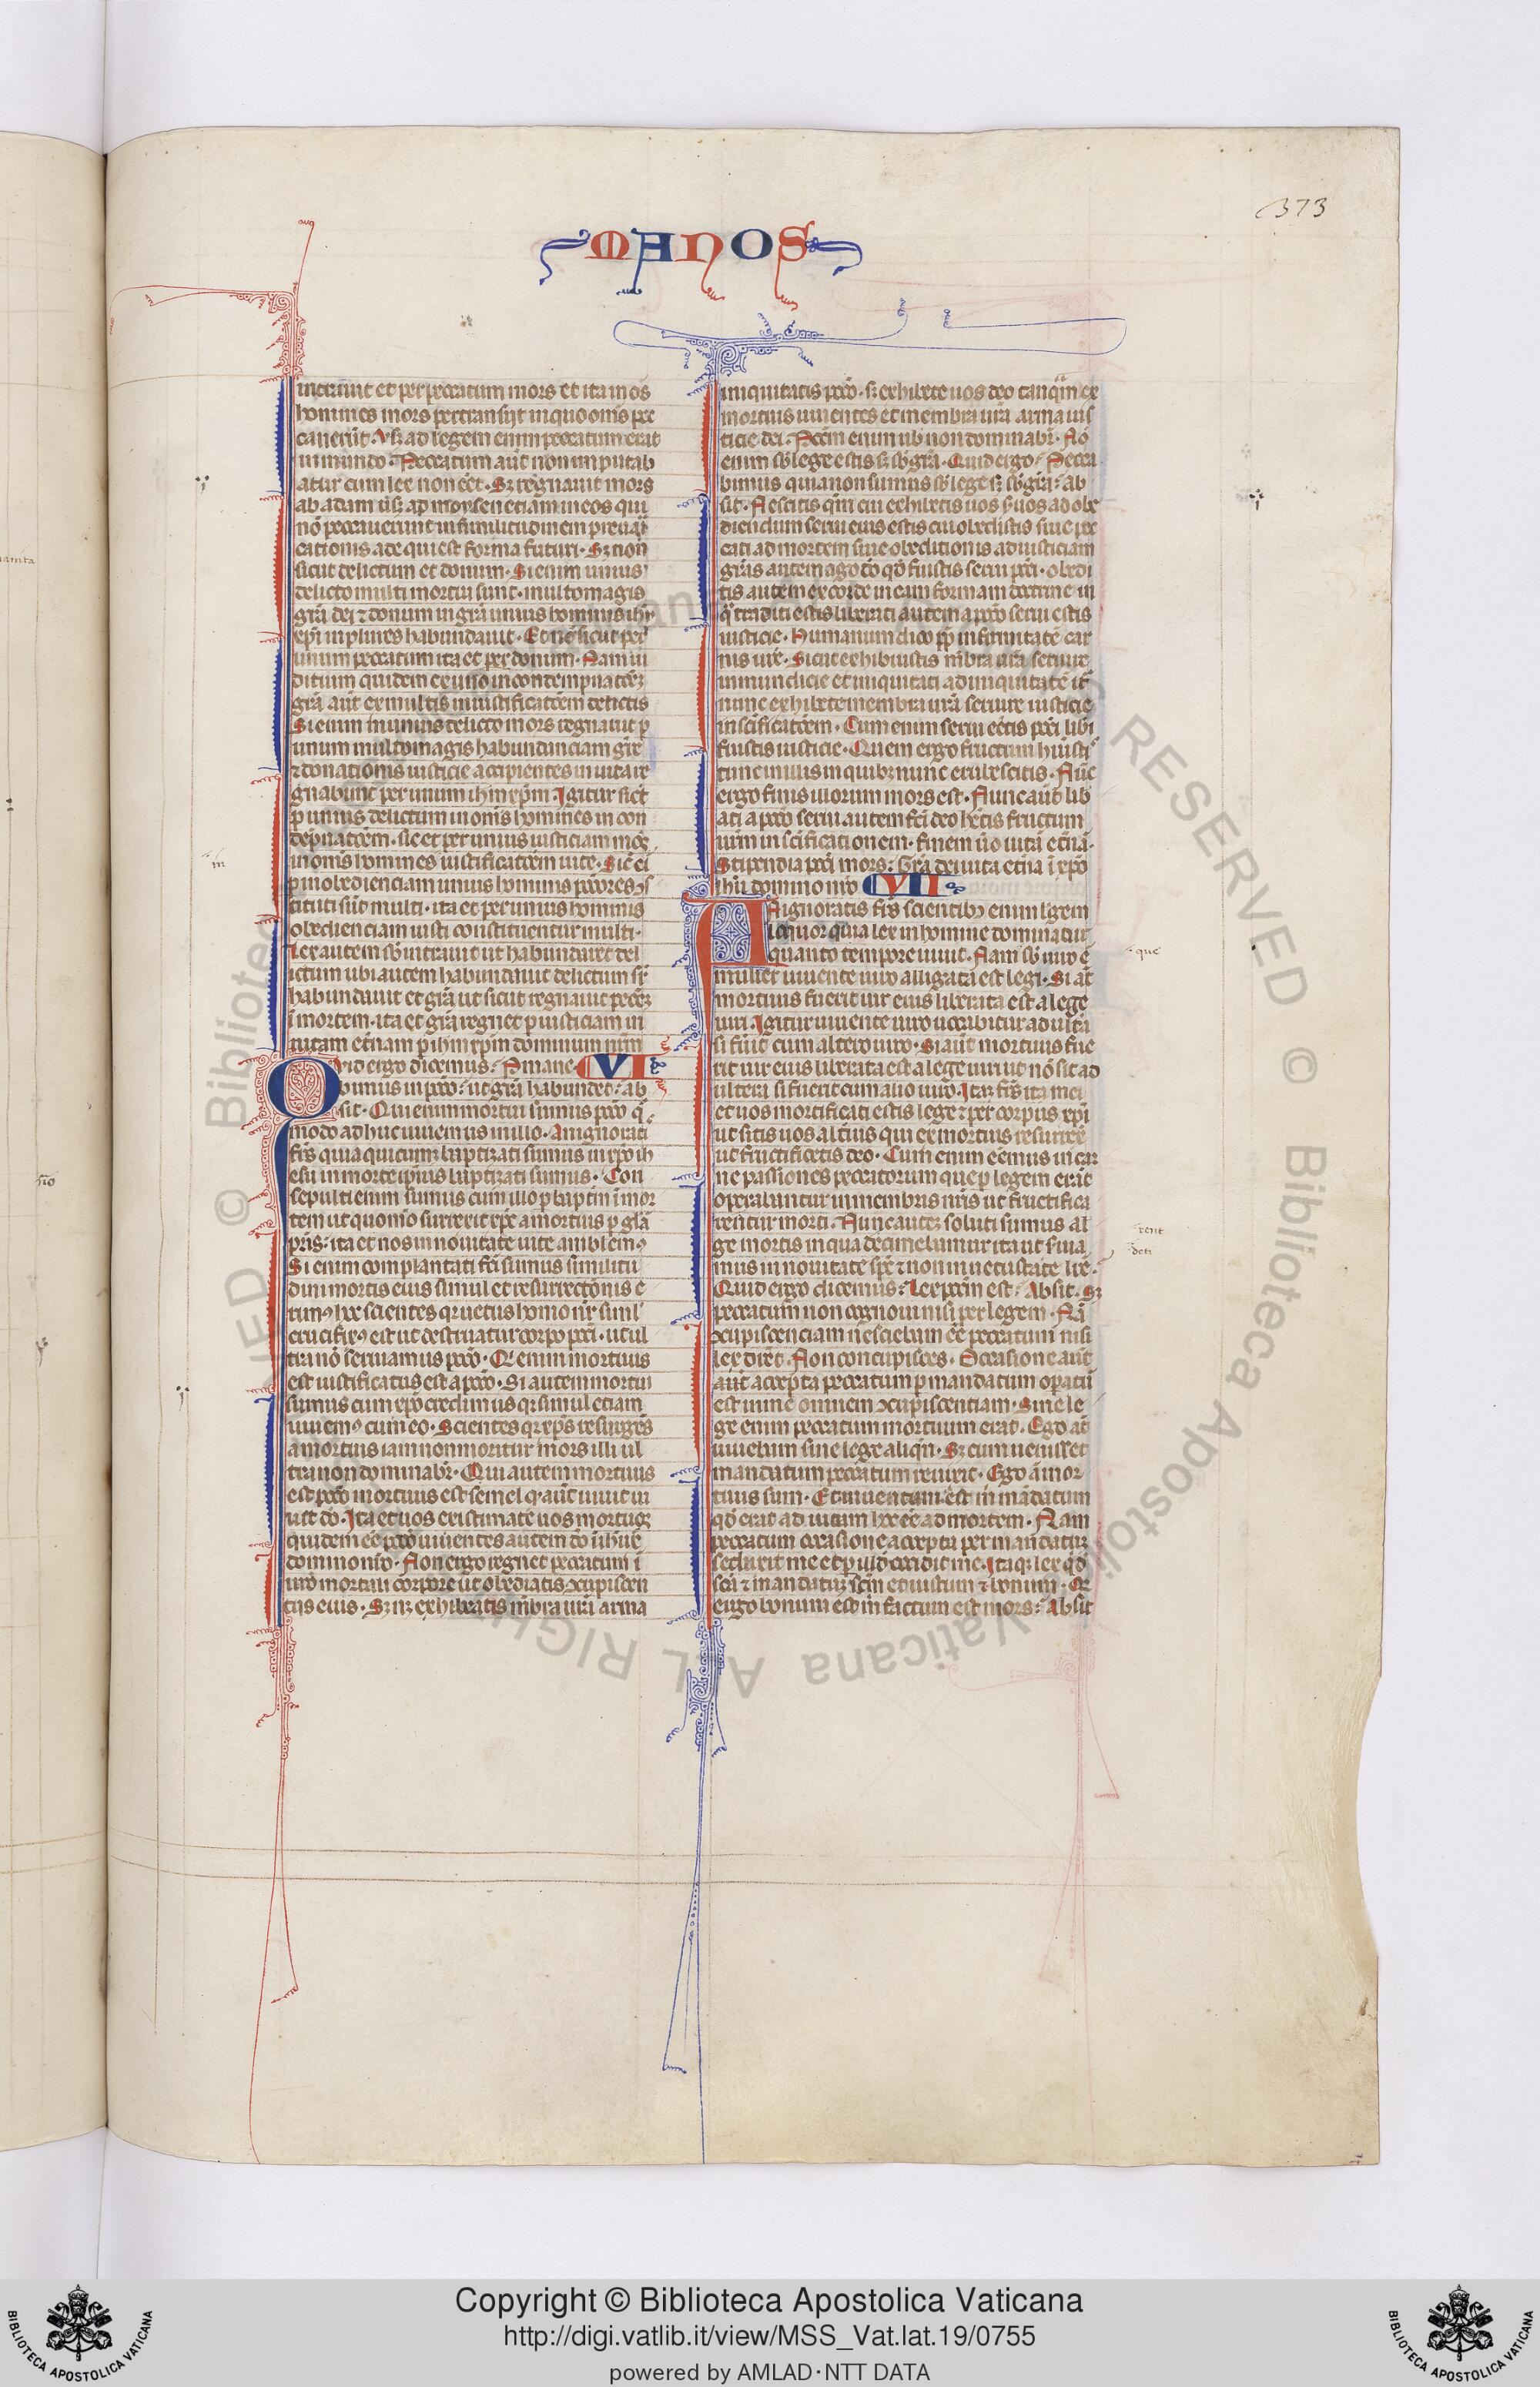 373
MANOS
intrauit et per peccatum mors et ita in os
homines mors pertransijt in quo om̃s pec
cauerũt. Vsq; ad legem enim peccatum erat
in mundo. Peccatum aũt non imputab
atur cum lex non eẽt. Sꝫ regnauit mors
ab adam usq; ad moysen etiam in eos qui
nõ peccauerunt in similitudinem preuari
cationis ade qui est forma futuri. Sꝫ non
sicut delictum et donum. Si enim unius
delicto multi mortui sunt. multo magis
grã dei ⁊ donum in grã unius hominis ihũ
xp̃i in plures habundauit. Et nõ sicut per
unum peccatum ita et per donum. Nam iu
ditium quidem ex uno in condempnac̃oeꝫ
grã aũt ex multis in iustificac̃oem delictis
Si enim in unius delicto mors regnauit p
unum multo magis habundanciam gr̃e
⁊ donationis iusticie accipientes in uita re
gnabunt per unum ihm xp̃m. Igitur sic̃t
p unius delictum in om̃s homines in con
dẽpnac̃oem. sic et per unius iusticiam
in om̃s homines iustificac̃oem uite. Sic̃ ei
p inobedienciam unius hominis pcc̃ores
tituti sũt multi. ita et per unius hominis
obedienciam iusti constituentur multi.
Lex autem sb̃intrauit ut habundaret del
ictum ubi autem habundauit delictum sr̃
habundauit et grã ut sicut regnauit pecc̃m
ĩ mortem. ita et grã regnet p iusticiam in
uitam etñam p ihm xp̃m dominum nrm̃
Quid ergo dicemus? Pmane VI
bimus in pcc̃o? ut grã habundet? ab
sit. Qui enim mortui sumus pcc̃o q̃
modo adhuc uiuemus in illo. An ignorati
fr̃s quia quicumq; baptizati sumus in xp̃o ih
esu in morte ipsius baptizati sumus. Con
sepulti enim sumus cum illo p baptism̃ ĩ mor
tem ut quomõ surrexit xp̃c a mortuis p glã
pr̃is. ita et nos in nouitate uite ambulem9
Si enim complantati fc̃i sumus similitu
dini mortis eius simul et resurrectionis e
rim9 hoc scientes qr uetus homo nr̃ simul
crucifix9 est ut destruatur corpo pcc̃i. ut ul
tra nõ seruiamus pcc̃o. Qi enim mortuus
est iustificatus est a pcc̃o. Si autem mortui
sumus cum xp̃o credimus qr simul etiam
uiuem9 cum eo. Scientes qr xp̃s resurgẽs
a mortuis iam non moritur mors illi ul
tra non dominabr̃. Qui autem mortuus
est pcc̃o mortuus est semel q̃ aũt uiuit ui
uit dõ. Ita et uos existimate uos mortuos
quidem eẽ pcc̃o uiuentes autem dõ in
domino nrõ. Non ergo regnet peccatum ĩ
urõ mortali corpore ut obediatis ꝯcupiscen
tijs eius. Sꝫ nꝫ exhibeatis mẽbra urã arma
iniquitatis pcc̃o. sꝫ exhibete uos deo tanq̃m ex
mortuis uiuentes et membra urã arma ius
ticie dei. Pcc̃m enim uob̃ non dominabr̃. Nõ
enim sb̃ lege estis sꝫ sb̃ grã. Quid ergo? Pecca
bimus quia non sumus sb̃ lege sꝫ sb̃ grã? ab
sit. Nescitis qm̃ cui exhibetis uos suos ad obe
diendum serui eius estis cui obedistis siue pec
cati ad mortem siue obeditionis ad iusticiam
grãs autem ago dõ qd̃ fuistis serui pcc̃i. obedi
tis autem ex corde in eam formam doctrine in
q̃ traditi estis liberati autem a pcc̃o serui estis
iusticie. Humanum dico pp̃ infirmitatẽ car
nis ur̃e. Sicut exhibuistis mẽbra urã seruire
inmundicie et iniquitati ad iniquitatẽ ita
nunc exhibete membra urã seruire iusticie
in sc̃ificac̃oem. Cum enim serui eẽtis pcc̃i lib̃i
fuistis iusticie. Quem ergo fructum huisti
tunc in illis in quibꝫ nunc erubescitis. Nũc
ergo finis illorum mors est. Nunc aũt lib
ati a pcc̃o serui autem fc̃i deo hẽtis fructum
urm̃ in sc̃ificationem. finem ũo uitã etñã.
Stipendia pcc̃i mors. Grã dei uita etña ĩ xp̃o
ihũ domino nrõ VII
An ignoratis fr̃s scientibꝫ enim legem
loquor quia lex in homine dominatur
quanto tempore uiuit. Nam sb̃ uiro ẽ
mulier uiuente uiro alligata est legi. Si aũt
mortuus fuerit uir eius liberata est a lege
uiri. Igitur uiuente uiro uocabitur adultã
si fũit cum altero uiro. Si aũt mortuus fue
rit uir eius liberata est a lege uiri ut nõ sit ad
ultera si fuerit cum alio uiro. Itaq; fr̃s ita mei
et uos mortificati estis lege ⁊ per corpus xp̃i
ut sitis uos alterius qui ex mortuis resurrex̃
ut fructificetis deo. Cum enim eẽmus in car
ne passiones peccatorum que p legem erãt
operabantur in membris nr̃is ut fructifica
rentur morti. Nunc autem soluti sumus a le
ge mortis in qua detinebamur ita ut seruia
mus in nouitate sp̃c ⁊ non in uetustate lr̃e.
Quid ergo dicemus? Lex pcc̃m est? Absit. Sꝫ
peccatum non cognoui nisi per legem. Nã
ꝯcupiscenciam nesciebam eẽ peccatum nisi
lex dicer̃t. Non concupisces. Occasione aũt
aũt accepta peccatum p mandatum opatũ
est in me omnem ꝯcupiscentiam. Sine le
ge enim peccatum mortuum erat. Ego aũt
uiuebam sine lege aliqñ. Sꝫ cum uenisset
mandatum peccatum reuixit. Ego ã mor
tuus sum. Et inuentum est m̃ mandatum
qd̃ erat ad uitam hoc eẽ ad mortem. Nam
peccatum occasione accepta per mandatũ
seduxit me et p illud occidit me. Itaq; lex qd̃
sc̃a ⁊ mandatũ sc̃m et iustum ⁊ bonum. Q
ergo bonum est m̃ factum est mors? Absit
que
rent
deti
Copyright © Biblioteca Apostolica Vaticana
http://digi.vatlib.it/view/MSS_Vat.lat.19/0755
powered by AMLAD·NTT DATA
BIBLIOTECA APOSTOLICA VATICANA
BIBLIOTECA APOSTOLICA VATICANA